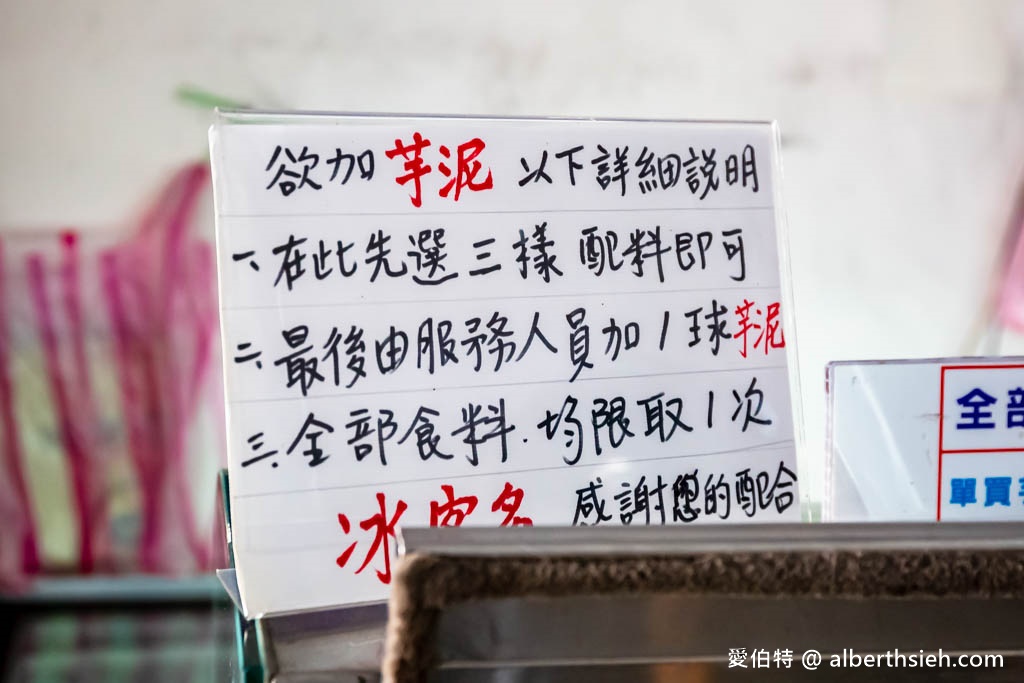 欲加 芋泥 以下詳細說明
一、在此先選三樣 配料即可
二、最後由服務人員加1球芋泥
三、全部食料.均限取1次
冰 感謝您的配合
全部
單買
愛伯特 @ alberthsieh.com